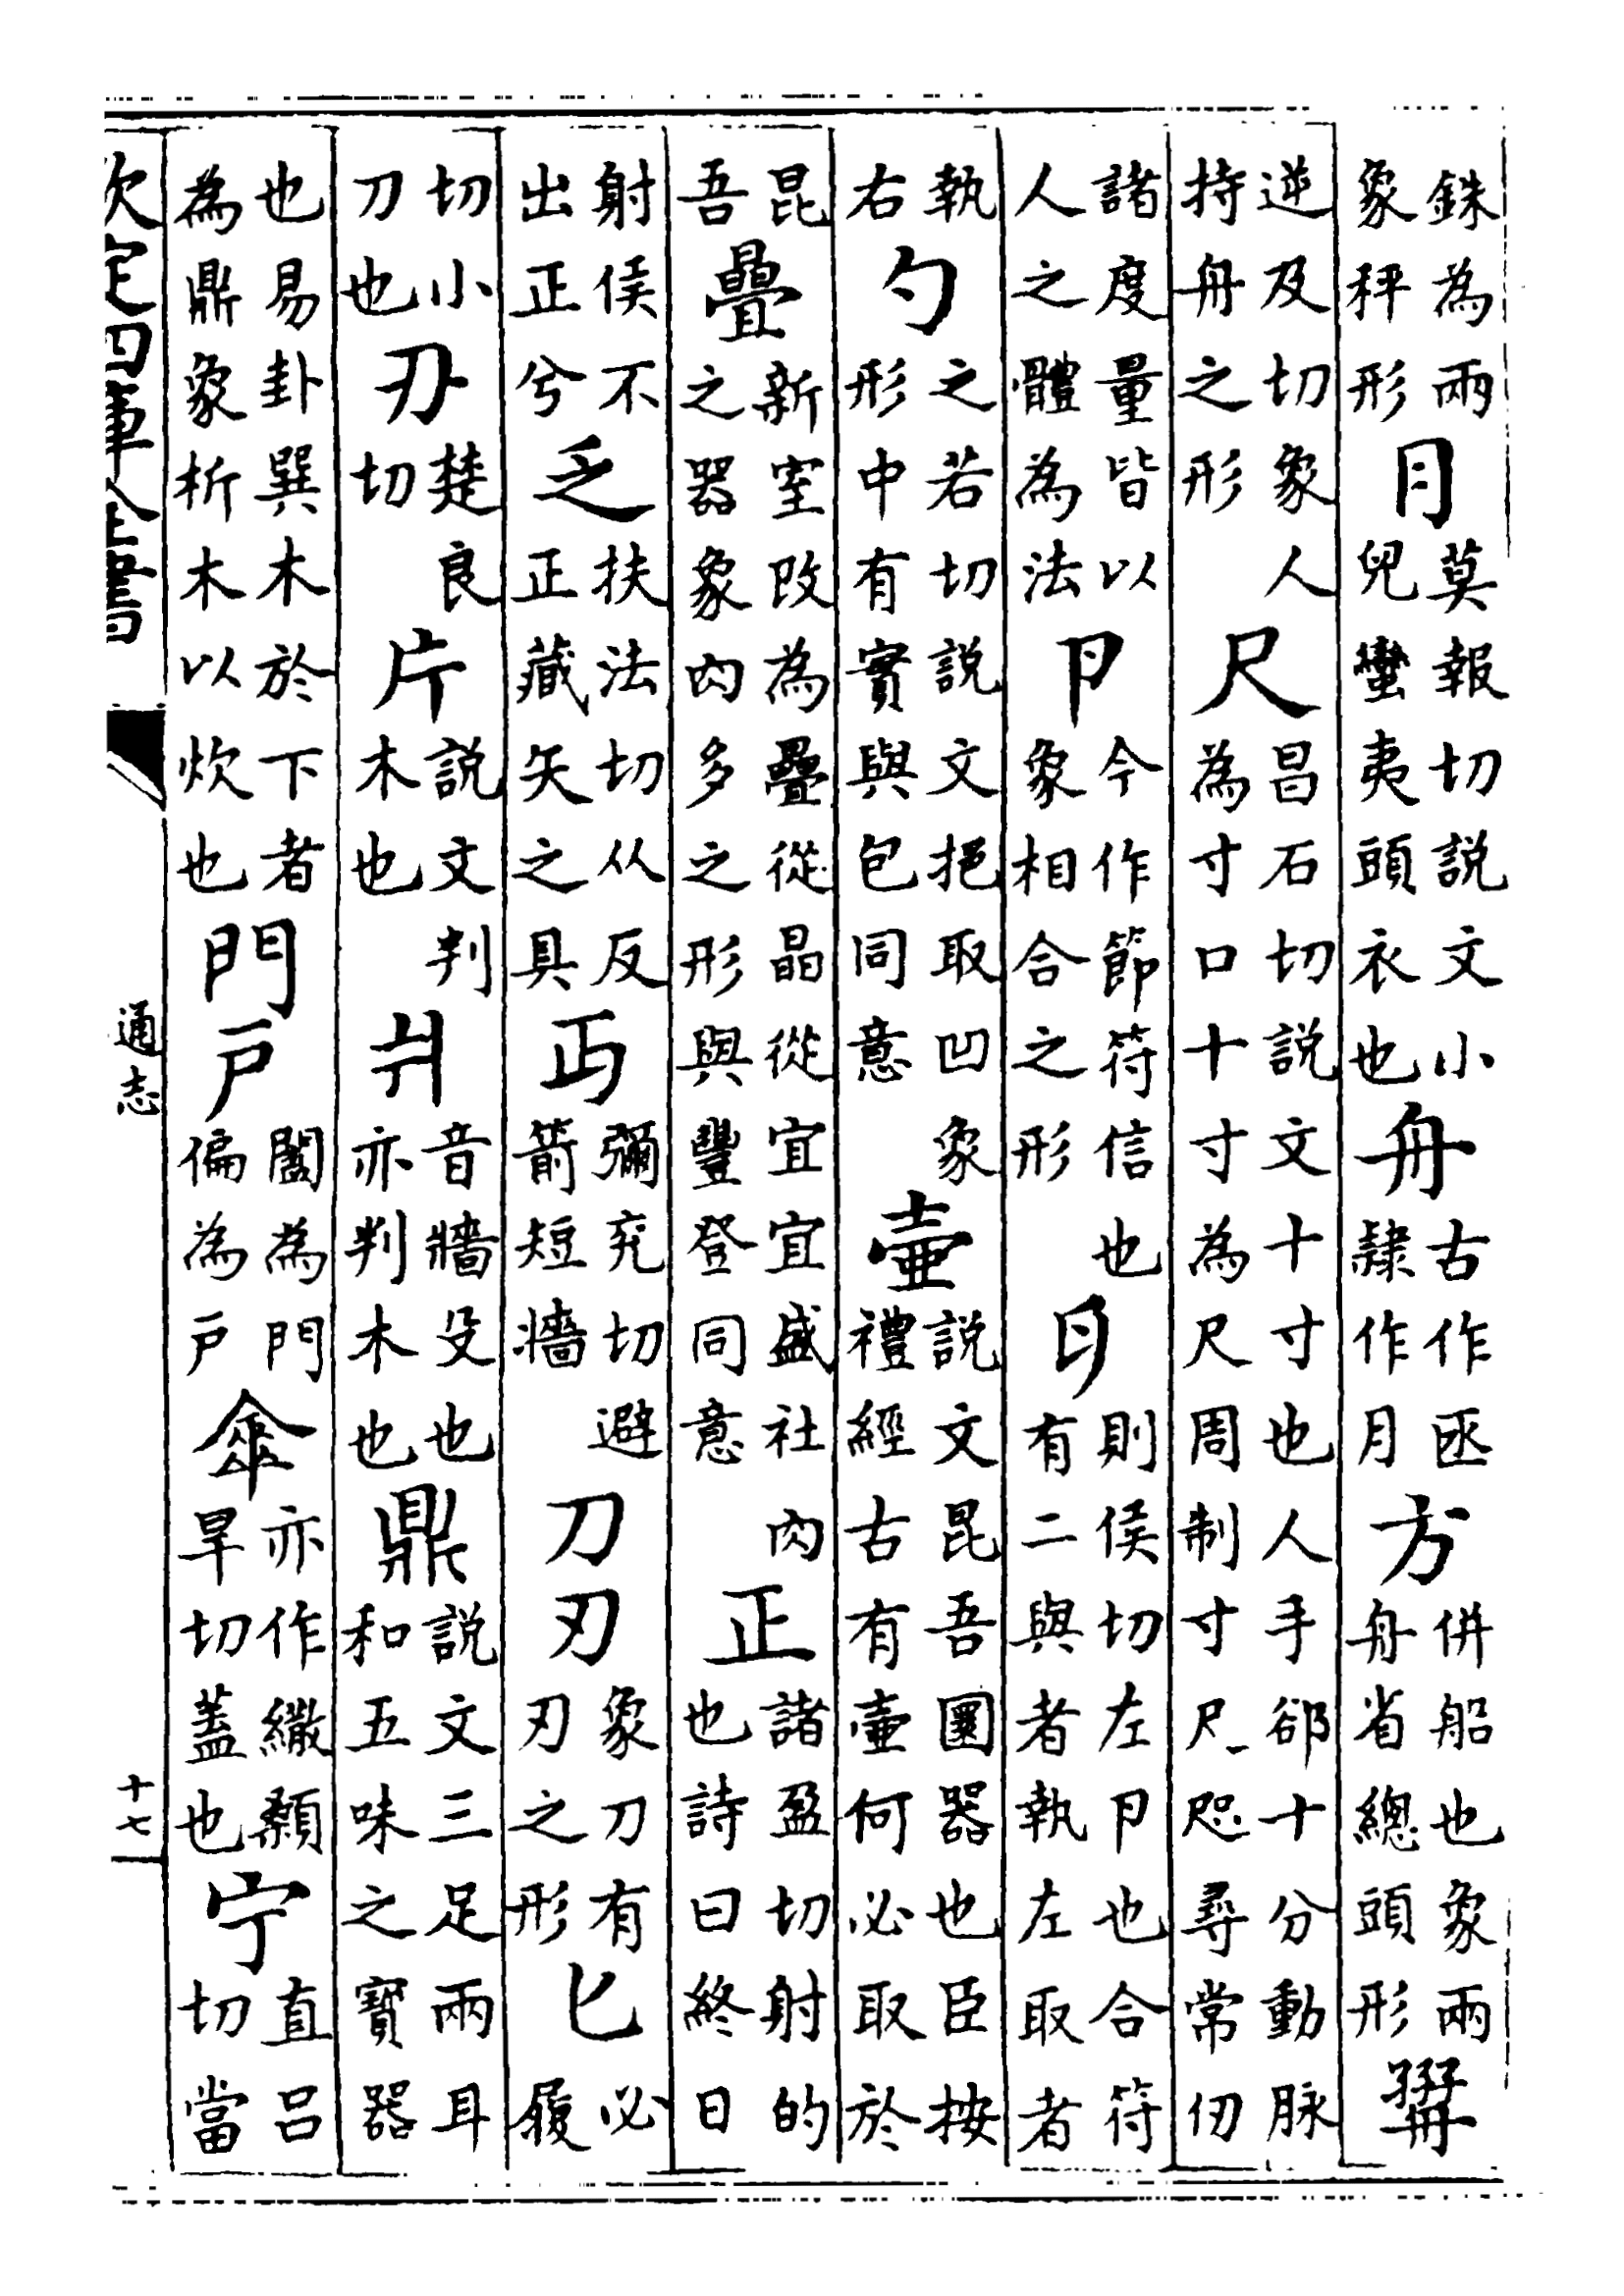 銖為兩象秤形冃莫報切説文小兒蠻夷頭衣也舟古作匥隸作月方併船也象兩舟省總頭形
逆及切象人持舟之形尺昌石切説文十寸也人手郤十分動脉為寸口十寸為尺周制寸尺咫尋常仞
諸度量皆以人之體為法卪今作節符信也象相合之形則侯切左卪也合符有二與者執左取者
執右勺之若切説文挹取凹象形中有實與包同意壷説文昆吾圜器也臣按禮經古有壷何必取於
昆吾疊新室改為疊從晶從宜宜宜盛社肉之器象肉多之形與豐登同意正諸盈切射的也詩曰終日
射侯不出正兮乏扶法切从反正正藏矢之具丏彌兖切避箭短牆刀刃象刀有刃之形匕必履
切小刀也刅楚良切片説文判木也爿音牆殳也亦判木也鼎説文三足兩耳和五味之寳器
也易卦巽木於下者為鼎象析木以炊也門戶闔為門偏為戶傘亦作繖顙旱切蓋也宁直吕切當
欽定四庫全書
通志
十七